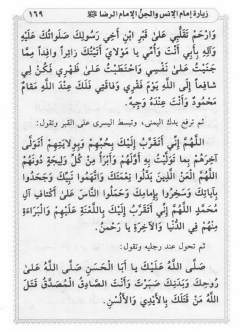 زيارة إمام الإنس والجنّ الإمام الرضا ﷺ ١٦٩
وَارْحَمْ تَقَلُّبِي عَلىٰ قَبْرِ ابْنِ أَخِي رَسُولِكَ صَلَواتُكَ عَلَيْهِ
وَآلِهِ بِأَبِي أَنْتَ وَأُمِّي يا مَوْلايَ أَتَيْتُكَ زائِراً وافِداً مِمَّا
جَنَيْتُ عَلىٰ نَفْسِي وَاحْتَطَبْتُ عَلىٰ ظَهْرِي فَكُنْ لِي
شافِعاً إِلَى اللهِ يَوْمَ فَقْرِي وَفاقَتِي فَلَكَ عِنْدَ اللهِ مَقامٌ
مَحْمُودٌ وَأَنْتَ عِنْدَهُ وَجِيهٌ.
ثم ترفع يدك اليمنى، وتبسط اليسرى على القبر وتقول:
اللَّهُمَّ إِنِّي أَتَقَرَّبُ إِلَيْكَ بِحُبِّهِمْ وَبِوِلايَتِهِمْ أَتَوَلَّى
آخِرَهُمْ بِما تَوَلَّيْتُ بِهِ أَوَّلَهُمْ وَأَبْرَأُ مِنْ كُلِّ وَلِيجَةٍ دُونَهُمْ
اللَّهُمَّ الْعَنِ الَّذِينَ بَدَّلُوا نِعْمَتَكَ وَاتَّهَمُوا نَبِيَّكَ وَجَحَدُوا
بِآياتِكَ وَسَخِرُوا بِإِمامِكَ وَحَمَلُوا النَّاسَ عَلىٰ أَكْتافِ آلِ
مُحَمَّدٍ اللَّهُمَّ إِنِّي أَتَقَرَّبُ إِلَيْكَ بِاللَّعْنَةِ عَلَيْهِمْ وَالْبَراءَةِ
مِنْهُمْ فِي الدُّنْيا وَالآخِرَةِ يا رَحْمٰنُ.
ثم تحول عند رجليه وتقول:
صَلَّى اللهُ عَلَيْكَ يا أَبَا الْحَسَنِ صَلَّى اللهُ عَلىٰ
رُوحِكَ وَبَدَنِكَ صَبَرْتَ وَأَنْتَ الصَّادِقُ الْمُصَدَّقُ قَتَلَ
اللهُ مَنْ قَتَلَكَ بِالأَيْدِي وَالأَلْسُنِ.